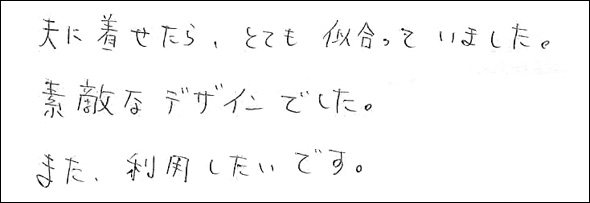 夫に着せたら、とても似合っていました。
素敵なデザインでした。
また、利用したいです。